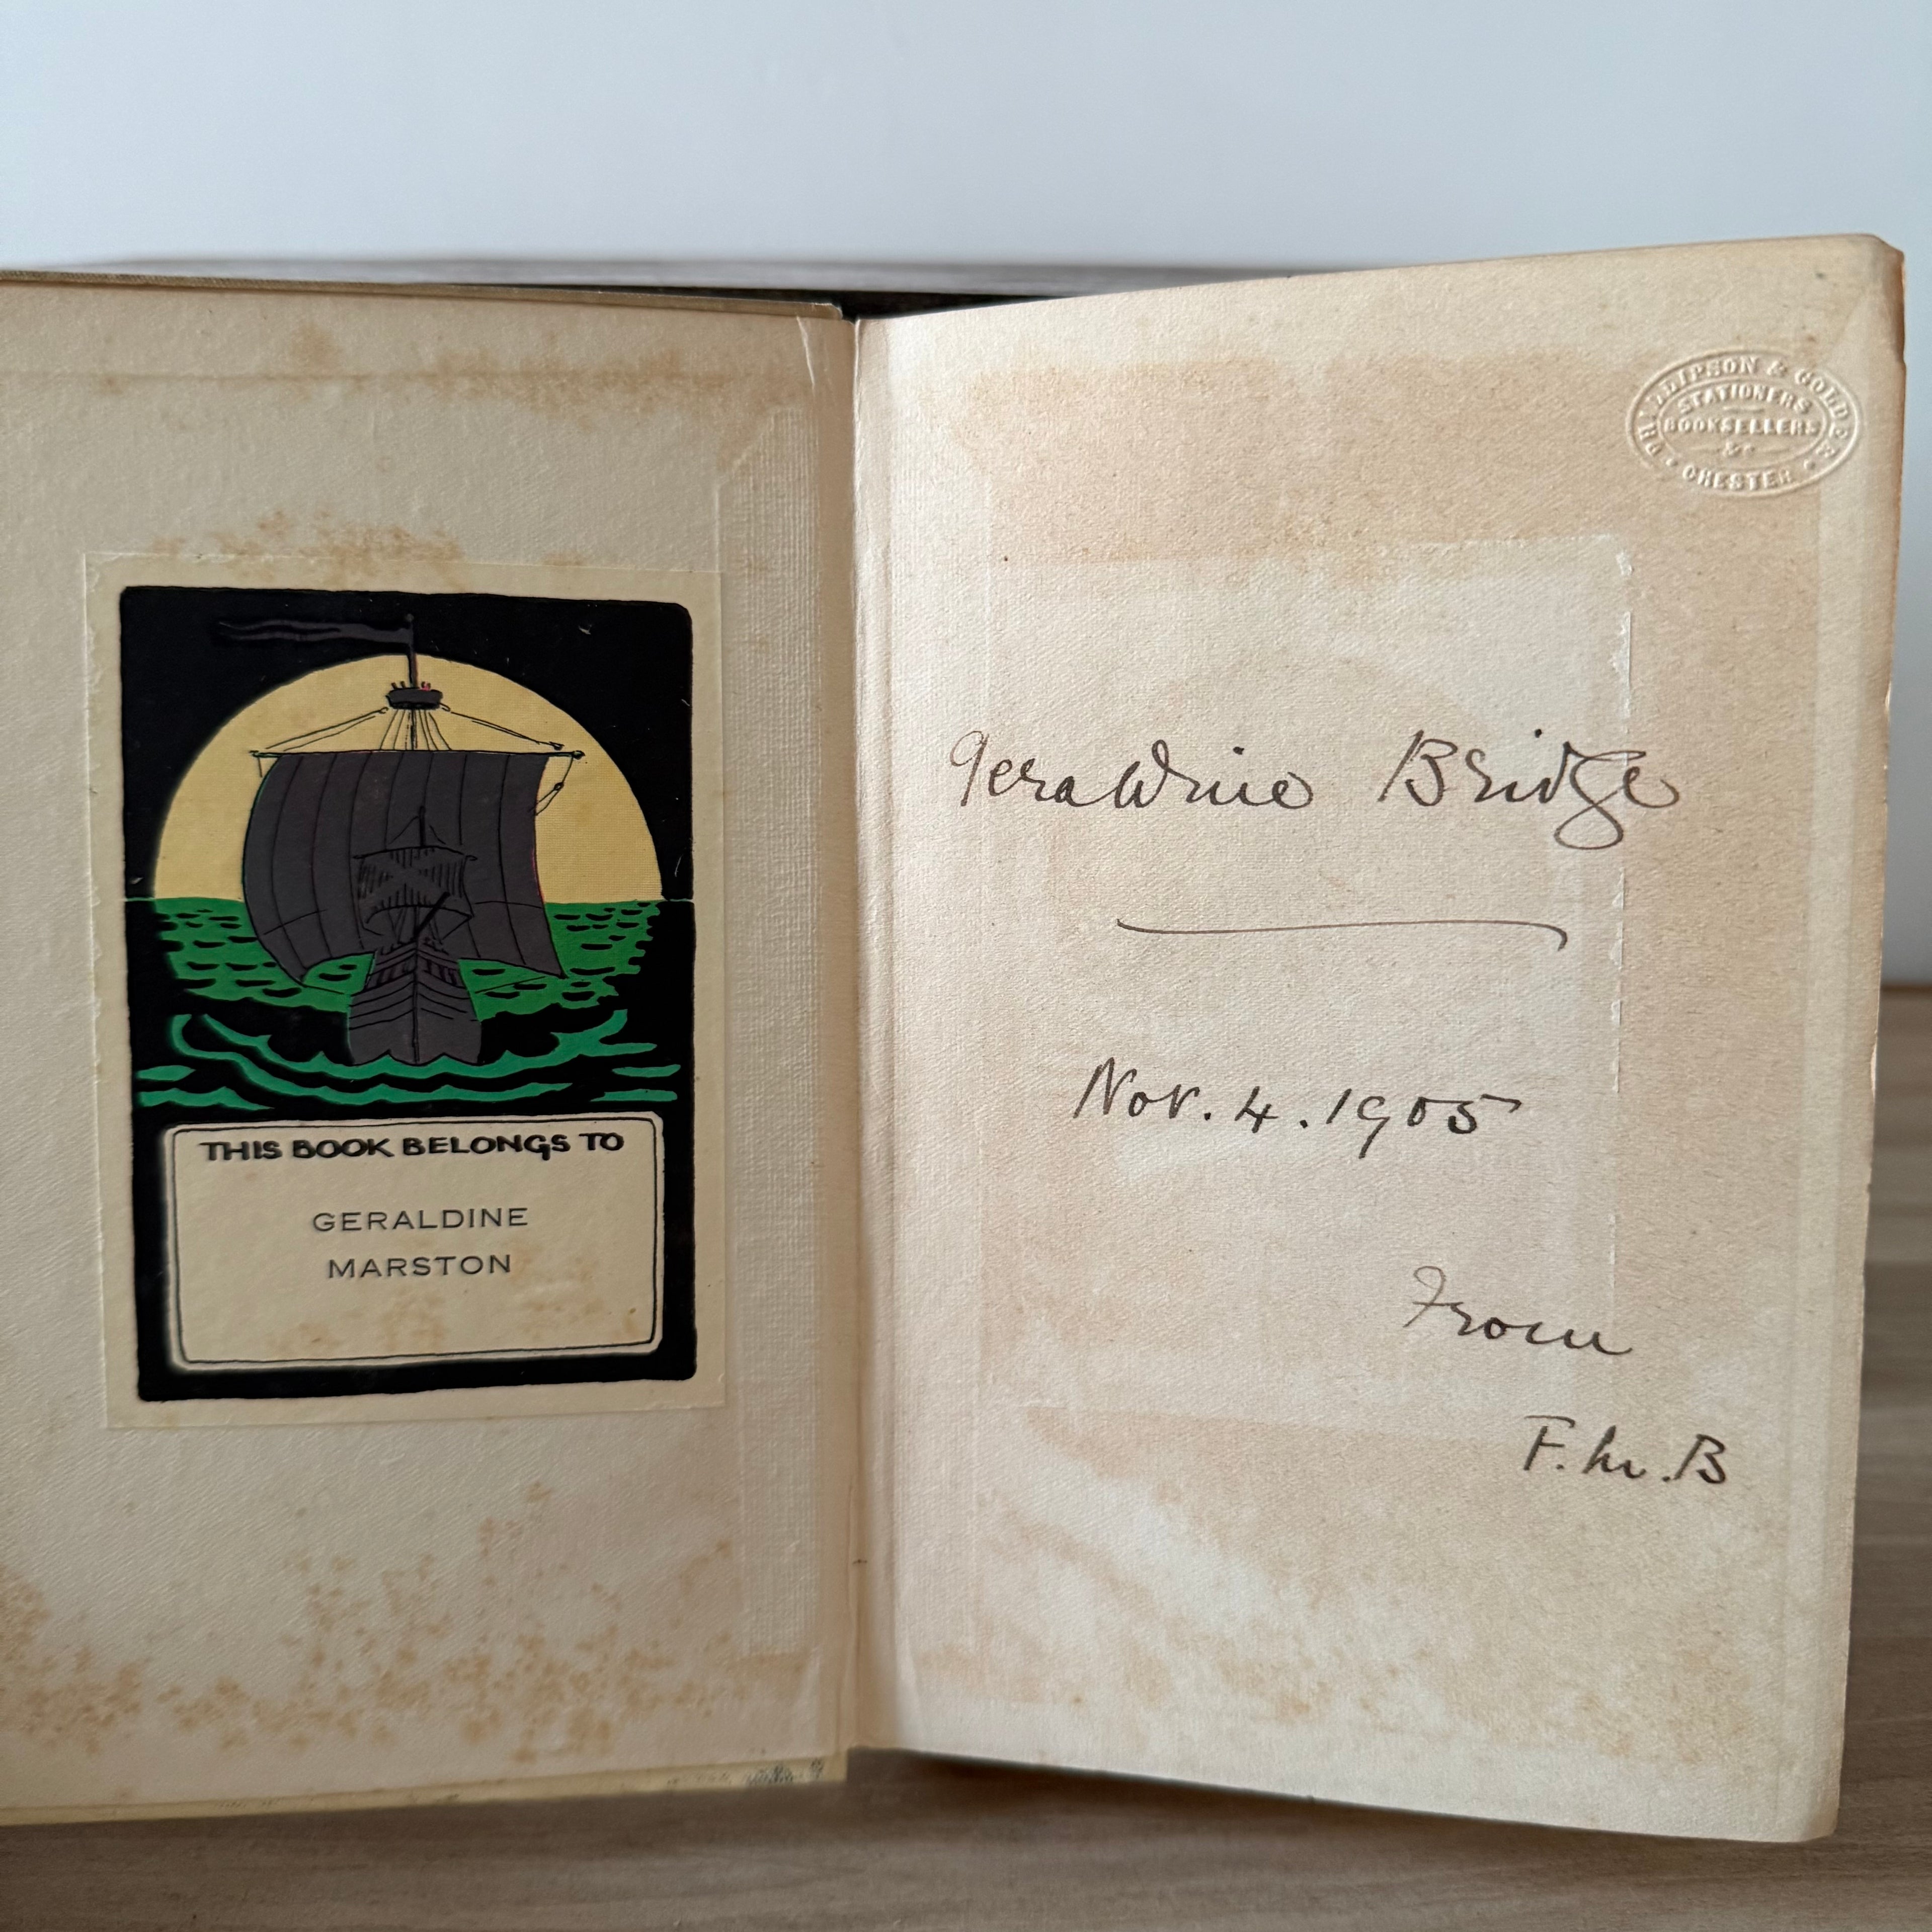 THIS BOOK BELONGS TO
GERALDINE
MARSTON
PHILLIPSON & GOLDER
STATIONERS
BOOKSELLERS
&c
CHESTER
Geraldine Bridge
Nov. 4. 1905
From
F. M. B